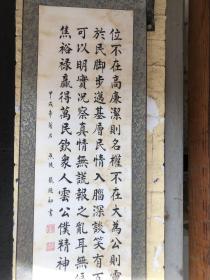 位不在高廉潔則名權不在大萬公則靈
於民脚步邁基層民情入腦深談笑有
可以明實况察真情無謊報之亂耳無
焦裕禄贏得萬民欽衆人雲公僕精神
甲戌年
書